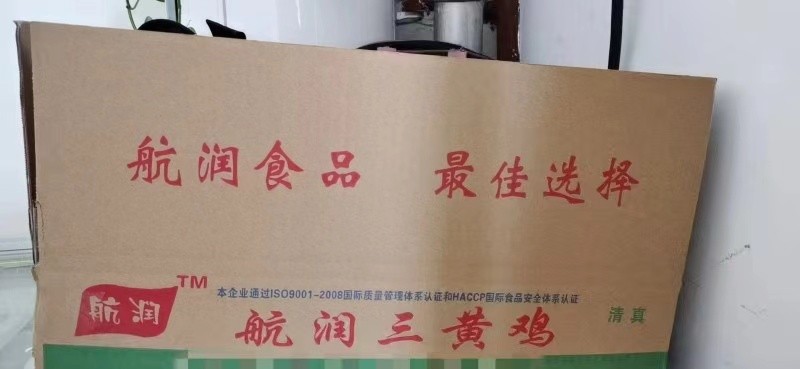 航润食品 最佳选择
航润 TM
本企业通过ISO9001-2008国际质量管理体系认证和HACCP国际食品安全体系认证
航润三黄鸡
清真